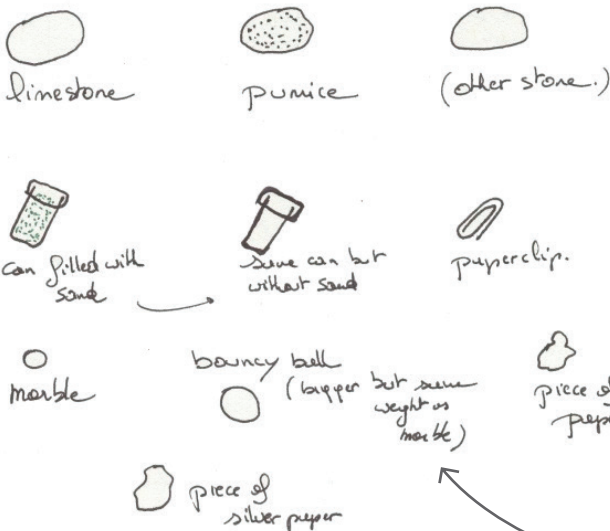 limestone
pumice
(other stone.)
can filled with
sand
same can but
without sand
paperclip.
marble
bouncy ball
(bigger but same
weight as
marble)
piece of
silver paper
piece